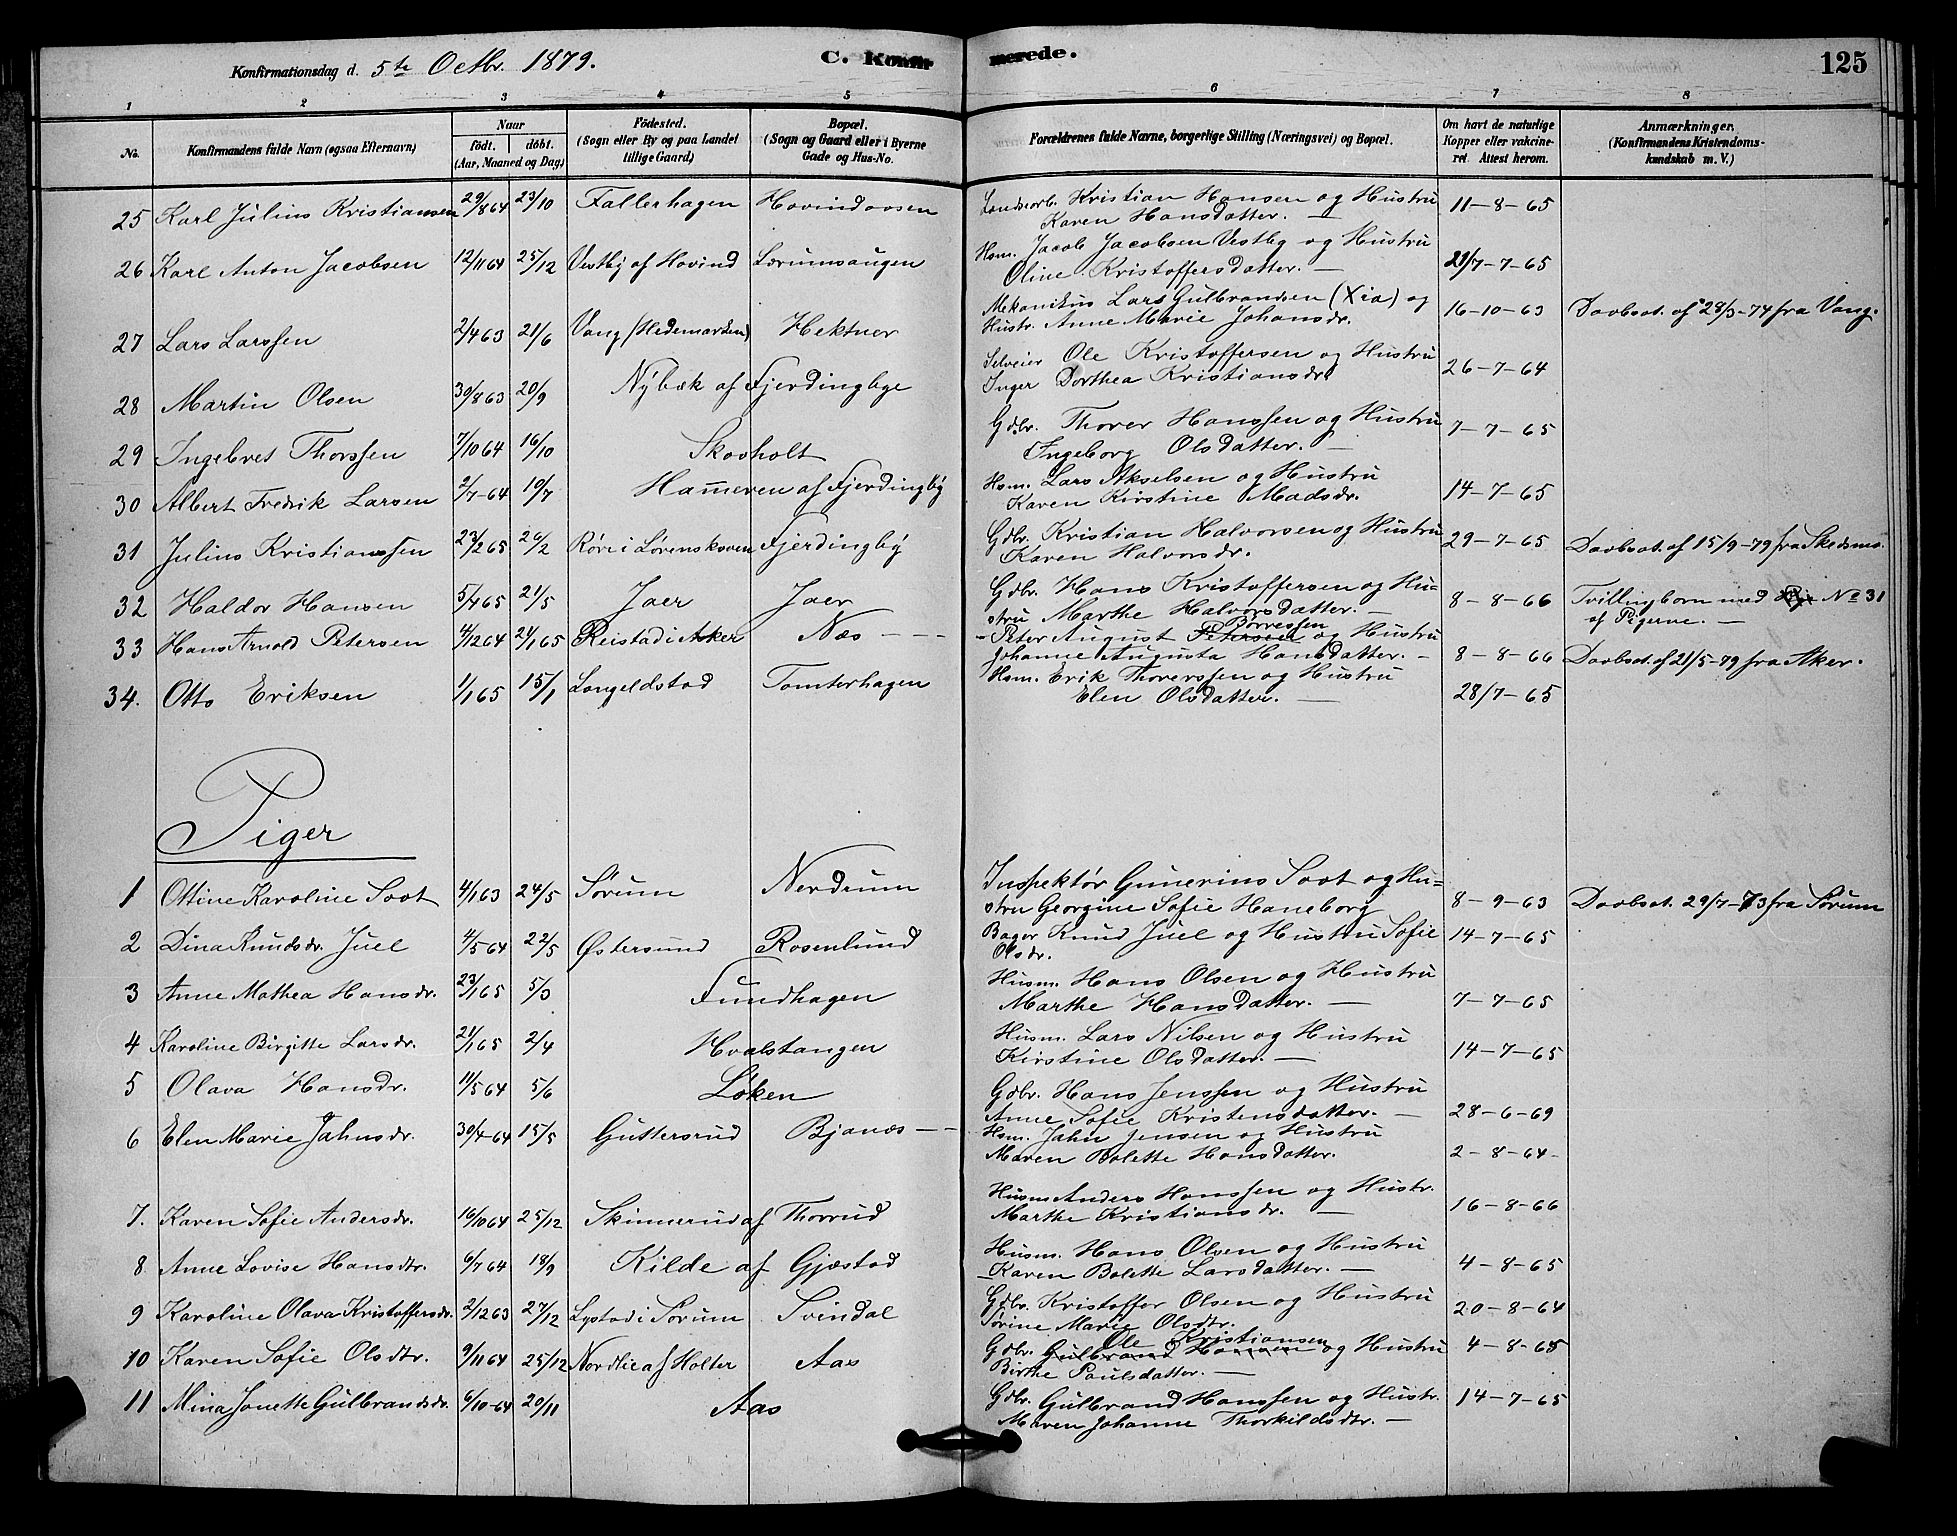 Konfirmationsdag d. 5te Octbr. 1879.
C. Konfirmerede.
125
1 2 3 4 5 6 7 8
No.
Konfirmandens fulde Navn (ogsaa Efternavn)
Naar
födt. döbt.
(Aar, Maaned og Dag)
Födested.
(Sogn eller By og paa Landet
tillige Gaard)
Bopæl.
(Sogn og Gaard eller i Byerne
Gade og Hus-No.
Forældrenes fulde Navne, borgerlige Stilling (Næringsvei) og Bopæl.
Om havt de naturlige
Kopper eller vakcine-
ret. Attest herom.
Anmærkninger.
(Konfirmandens Kristendoms-
kundskab m. V.)
25 Karl Julius Kristiansen 29/8 64 23/10 Fallerhagen Hovindaasen Kristian Hansen og Hustru
Karen Hansdatter. — 11-8-65
26 Karl Anton Jacobsen 12/11 64 25/12 Vestby af Hovind Lærumsaugen Hsm. Jacob Jacobsen Vestby og Hustru
Oline Kristoffersdatter. — 29/7-7-65
27 Lars Larssen 2/4 63 21/6 Vang (Hedemarken) Hektner Mekanikus Lars Gulbrandsen (Xia) og
Hustr. Anne Marie Johansdr. 16-10-63 Daabsat. af 28/3-74 fra Vang.
28 Martin Olsen 30/8 63 20/9 Nybæk af Fjerdingbye Selveier Ole Kristoffersen og Hustru
Inger Dorthea Kristiansdr. 26-7-64
29 Ingebret Thorssen 7/10 64 16/10 Skovholt Gdbr. Thorer Hanssen og Hustru
Ingeborg Olsdatter. — 7-7-65
30 Albert Fredrik Larsen 2/7-64 10/7 Hammeren af Fjerdingby Hsm. Lars Akselsen og Hustru
Karen Kirstine Madsdr. 14-7-65
31 Julius Kristianssen 23/2 65 26/2 Röre i Lørenskoven Fjerdingby Gdbr. Kristian Halvorsen og Hustru
Karen Halvorsdr. 29-7-65 Daabsat. af 15/9-79 fra Skedsmo.
32 Haldor Hansen 5/4 65 21/5 Jaer Jaer Gdbr. Hans Kristoffersen og Hu-
stru Marthe Halvorsdatter. — 8-8-66 Tvillingbarn med No 31
af Pigerne. —
33 Hans Arnold Petersen 4/12 64 24/1 65 Reistad i Asker Næs - - Peter August Petersen Börresen og Hustru
Johanne Augusta Hansdatter. — 8-8-66 Daabsat. af 21/5-79 fra Aker.
34. Otto Eriksen 1/1 65 15/1 Longeldstad Tomterhagen Hsm. Erik Thoverssen og Hustru
Elen Olsdatter. — 28/7-65
Piger
1 Ottine Karoline Soot 4/1 63 24/5 Sørum Nerdrum Inspektör Gunerius Soot og Hu=
stru Georgine Sofie Haneborg 8-9-63 Daabsat. 29/7-73 fra Sörum
2 Dina Knudsdr. Juel 4/5 64 22/5 Østersund Rosenlund Bager Knud Juel og Hustru Sofie
Olsdr. 14-7-65
3 Anne Mathea Hansdr. 23/1 65 5/3 Fundhagen Husm. Hans Olsen og Hustru
Marthe Hansdatter. — 7-7-65
4 Karoline Birgitte Larsdr. 21/1 65 2/4 Hvalstangen Husm. Lars Nilsen og Hustru
Kirstine Olsdatter. — 14-7-65
5 Olava Hansdr. 11/5 64 5/6 Løken Gdbr. Hans Jenssen og Hustru
Anne Sofie Kristensdatter. — 28-6-69
6 Elen Marie Jahnsdr. 30/4-64 15/5 Guttersrud Bjanæs - - Hsm. Jahn Jensen og Hustru
Maren Bolette Hansdatter. 2-8-64-
7. Karen Sofie Andersdr. 16/10 64 25/12 Skinnerud af Thorrud Husm Anders Hanssen og Hustr.
Marthe Kristiansdr. — 16-8-66
8 Anne Lovise Hansdtr. 6/7 64 18/9 Kilde af Gjæstad Husm. Hans Olsen og Hustru
Karen Bolette Larsdatter. — 4-8-65
9 Karoline Olava Kristoffersdr. 2/12 63 27/12 Lystad i Sørum Svindal Gdbr. Kristoffer Olsen og Hustru
Sörine Marie Olsdtr. 20-8-64
10 Karen Sofie Olsdtr. 9/11 64 25/12 Nordlie af Holter Aas Gdbr. Gulbrand Hansen Ole Kristiansen og Hustru
Birthe Paulsdatter. — 4-8-65
11 Mina Jonette Gulbrandsdr. 6/10-64 20/11 Aas Gdbr. Gulbrand Hanssen og Hustr.
Maren Johanne Thorkildsdtr. — 14-7-65